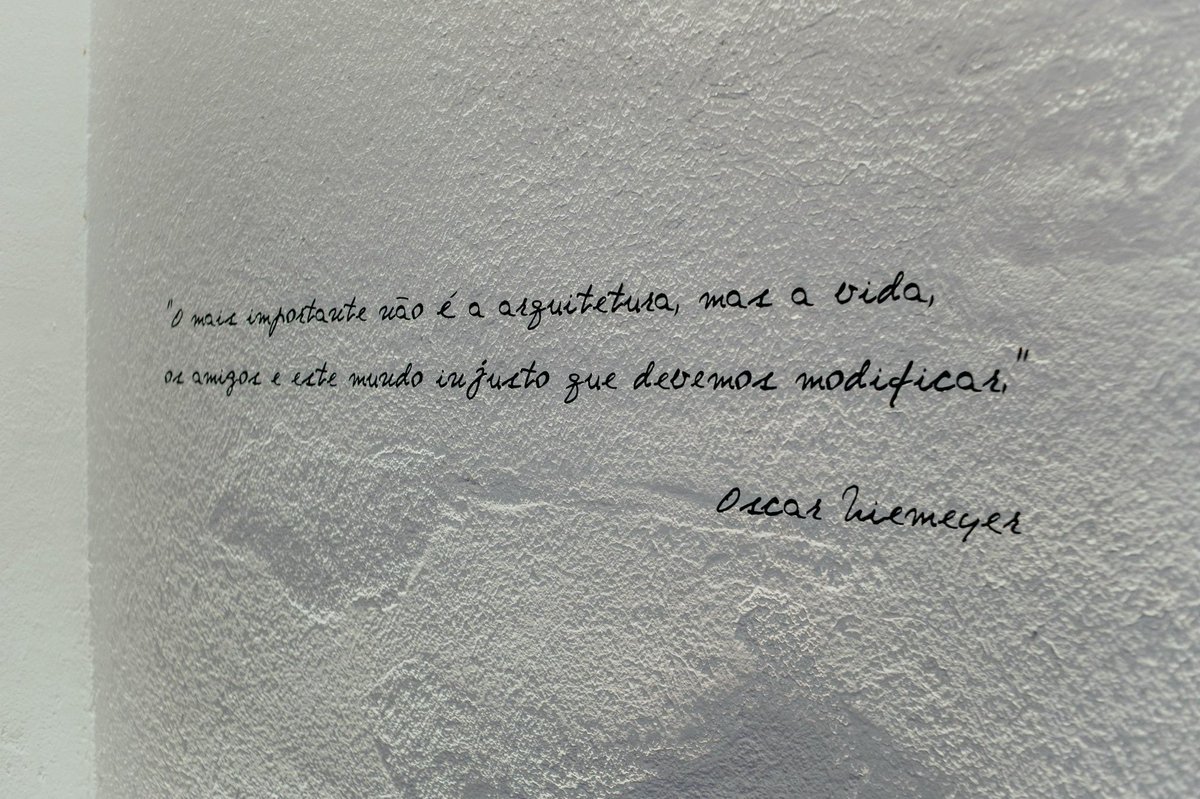 "O mais importante não é a arquitetura, mas a vida,
os amigos e este mundo injusto que devemos modificar."
Oscar Niemeyer